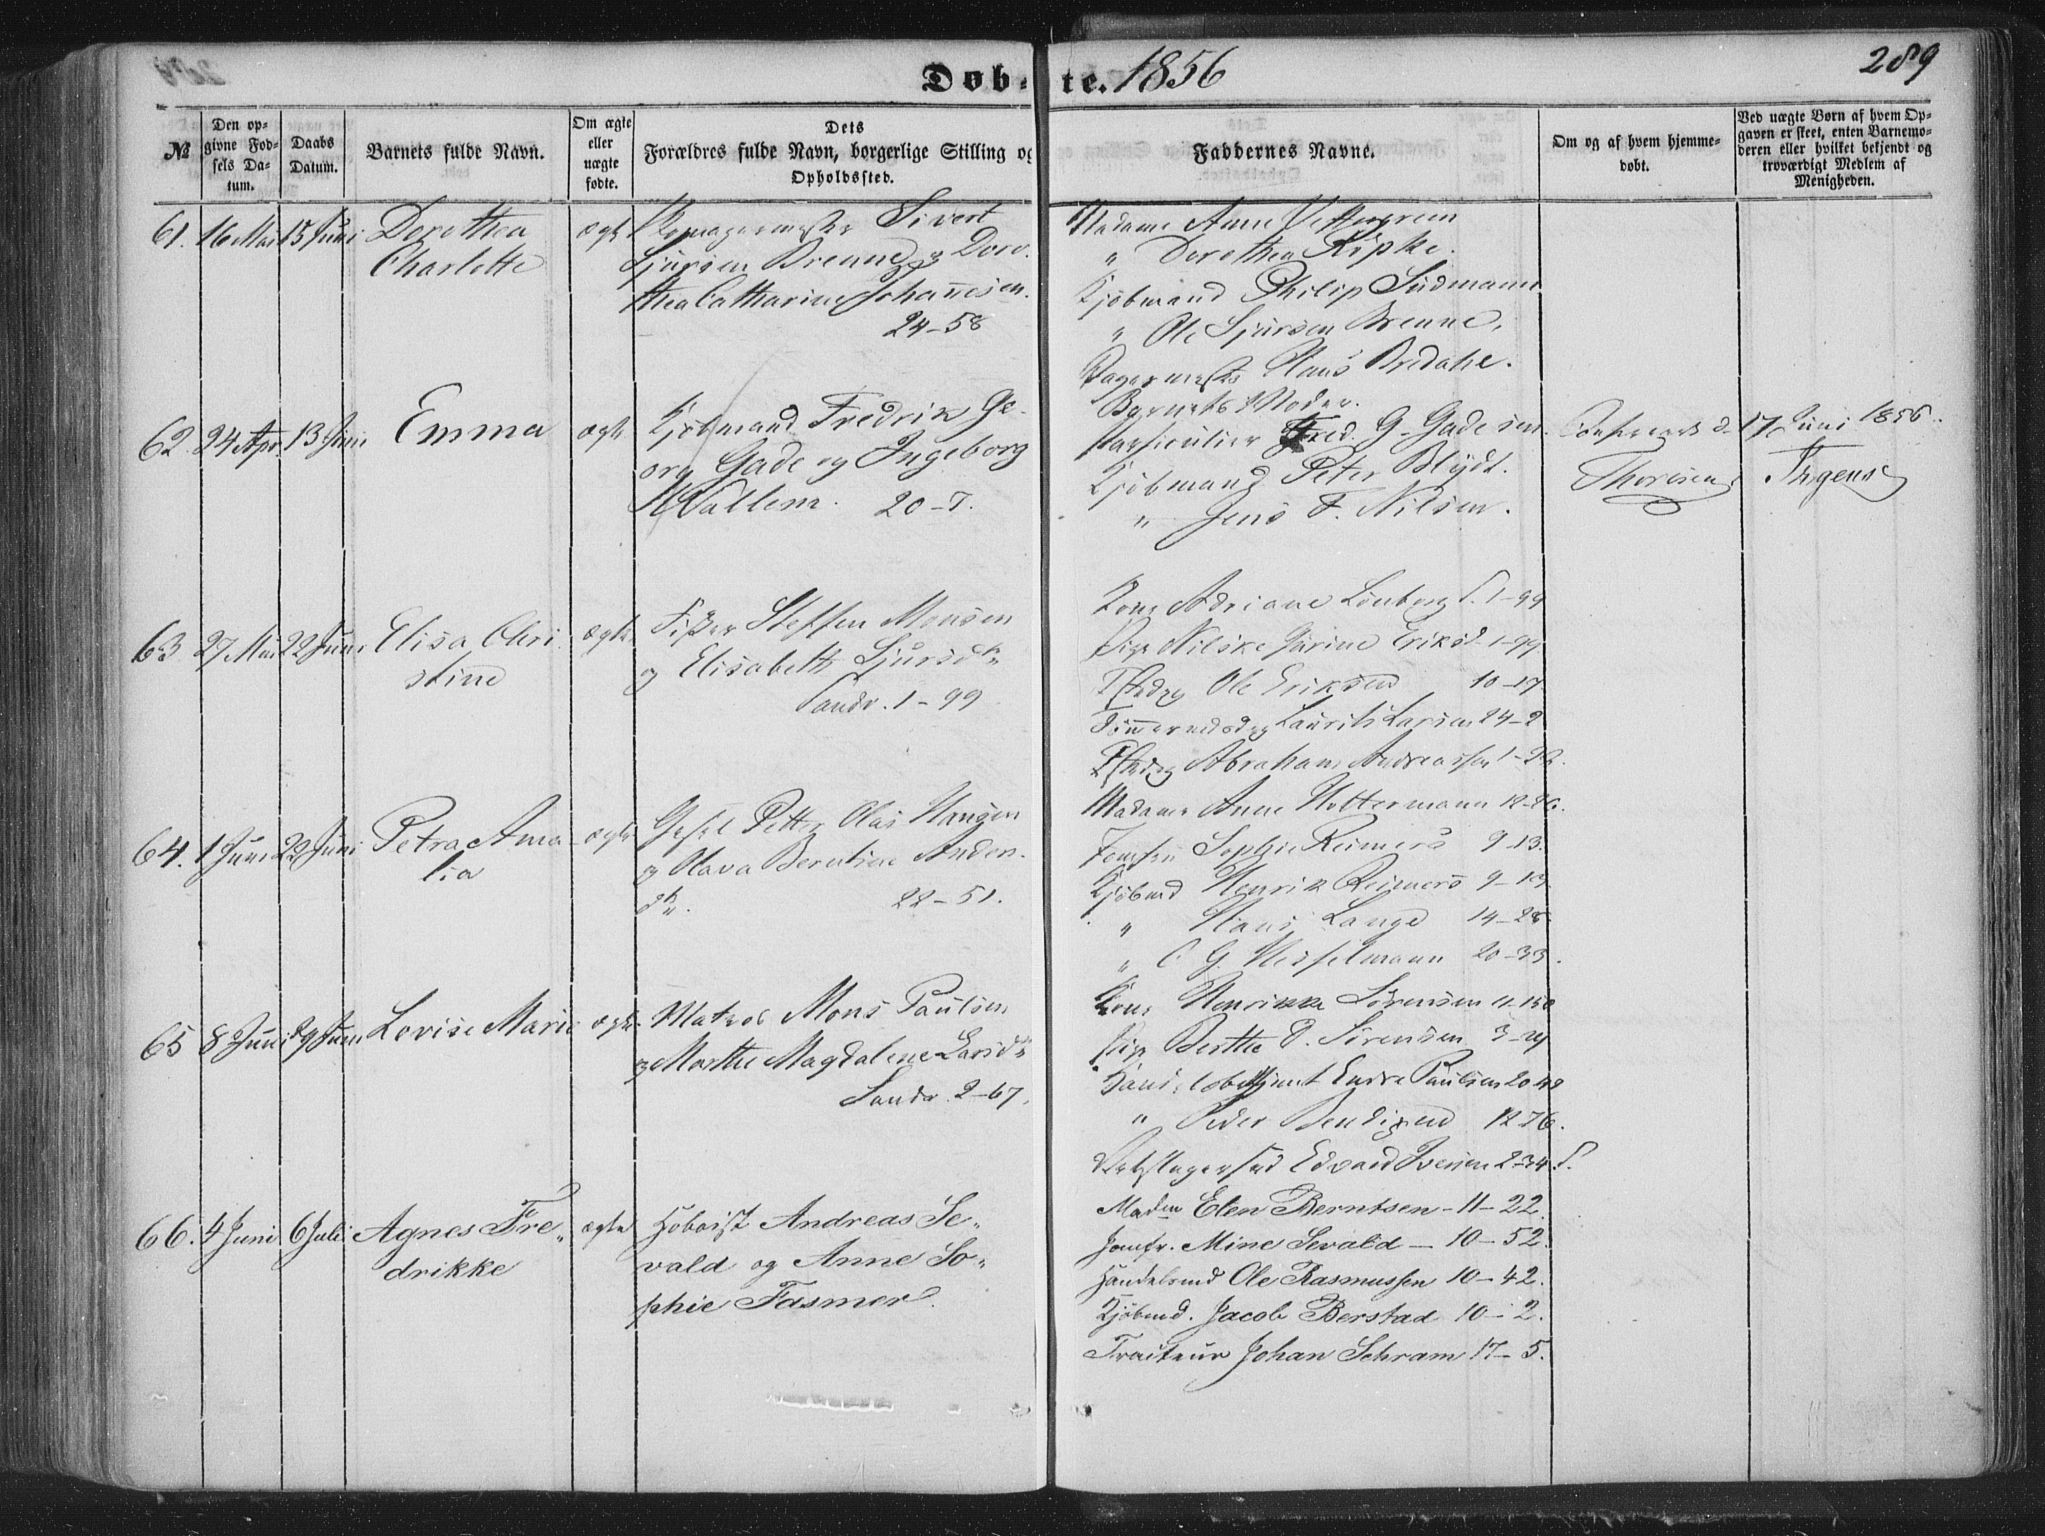 Døb-te. 1856
289
№
Den op-
givne Fød-
sels Da-
tum.
Daabs
Datum.
Barnets fulde Navn.
Om ægte
eller
uægte
fødte.
Dets
Forældres fulde Navn, borgerlige Stilling og
Opholdssted.
Faddernes Navne.
Om og af hvem hjemme-
døbt.
Ved uægte Børn af hvem Op-
gaven er skeet, enten Barnemo-
deren eller hvilket bekjendt og
troværdigt Medlem af
Menigheden.
61. 16 Mai 15 Juni Dorothea
Charlotte
ægte
Sivert
Sjursen Brenne og Doro-
thea Catharine Johannesen.
24-58
Madame Anne
" Dorothea Ripke.
Kjøbmand Philip Südmann
" Ole Sjursen Brenne.
Bagermester Claus Bredahl.
Barnets Moder.
62. 24 Apr. 13 Juni Emma
ægte
Kjøbmand Fredrik Ge-
org Gade og Ingeborg
Wallem. 20-7.
Particulier Fred. G. Gade sen.
Kjøbmand Peter Blydt.
" Jens F. Nilsen.
17 Juni 1856.
Thoresen
Irgens
63 27 Mai 22 Juni Elisa Chri
stine
ægte
Fisker Steffen Monsen
og Elisabeth Sjursdtr
Sandv. 1-99
Kone Adriane Lönborg S. 1-99
Pige Nilske Jörine Eriksd 1-99
Ole Eriksen 10-17
Laurits Larsen 24-2
Abraham Andreassen 1-
64. 1 Juni 22 Juni Petra Ama
lia
ægte
Petter Olai Hansen
og Olava Berntine Anders-
dtr. 22-51.
Madame Anne Holtermann 12-26.
Jomfru Sophie Reimers 9-13.
Kjøbmd Henrik Reimers 9-13
" Hans Lange 14-28
" C G Hesselmann 20-33.
65 8 Juni 29 Juni Lovise Marie
ægte
Matros Mons Paulsen
og Marthe Magdalene Larsdtr
Sandv. 2-67.
Kone Henrikke Sörensen 11-150
Pige Berthe P. Sörensen 3-
Endre Paulsen 20-48
" Peder Bendixen 12-76.
Edvard Iversen 2-34 S.
66. 4 Juni 6 Juli Agnes Fre-
drikke
ægte
Hoboist Andreas Se-
vald og Anne So-
phie Fasmer.
Madm Elen Berntsen - 11-22.
Jomfr. Mine Sevald - 10-52.
Handelsmd Ole Rasmussen 10-42.
Kjøbmd. Jacob Berstad 10-2.
Tracteur Johan Schram 17-5.